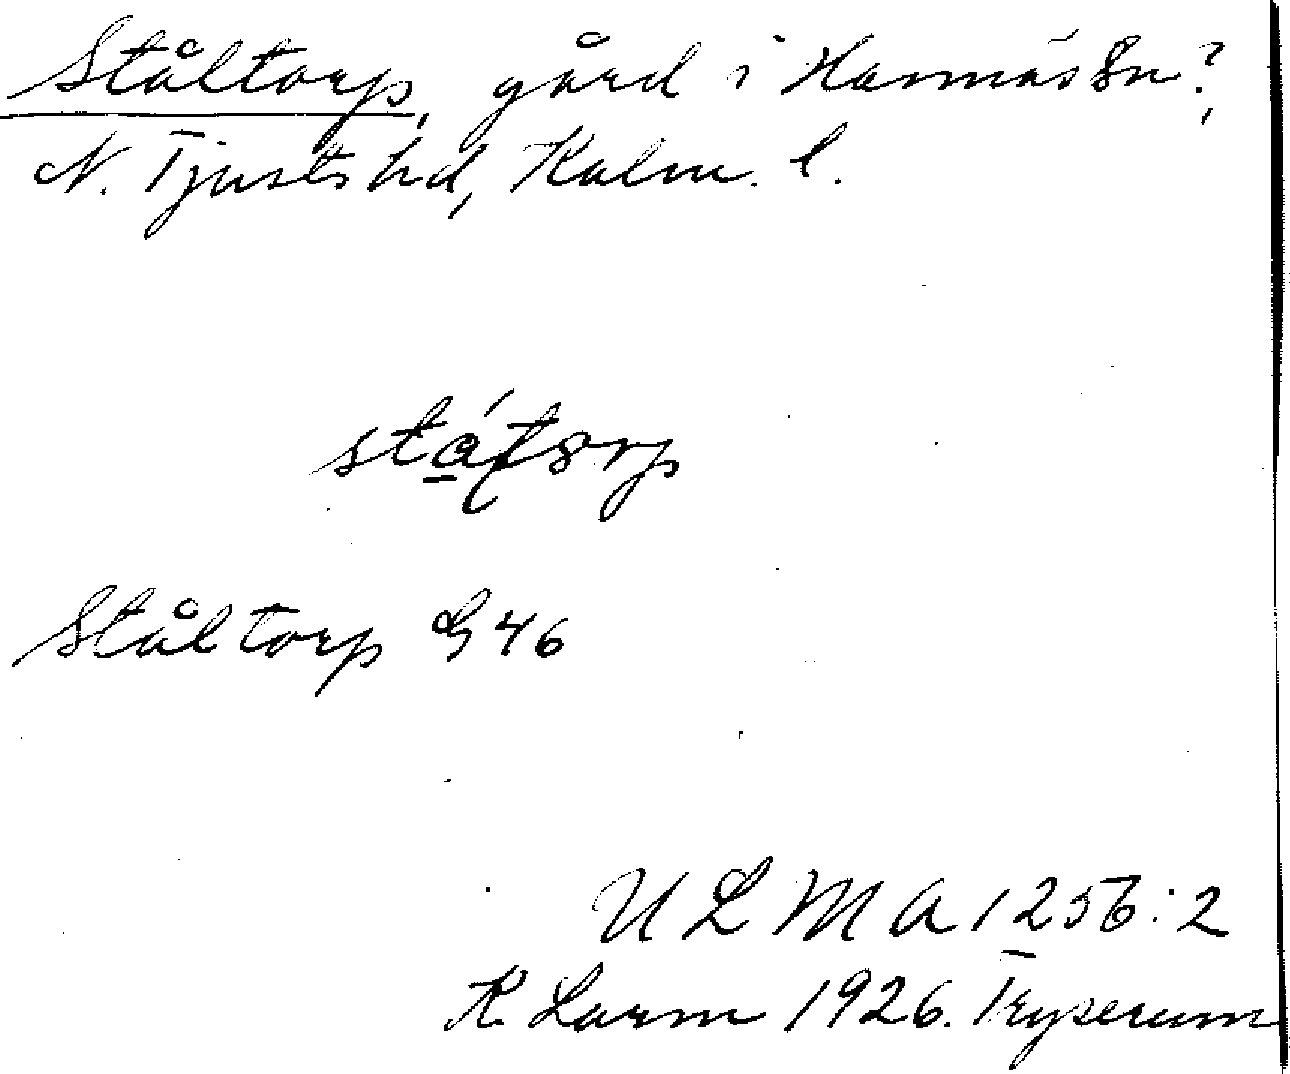 Ståltorp, gård i Hannäs sn?,
N. Tjusts hd, Kalm. l.
Ståltorp G 46
ULMA 1256:2
K. Larm 1926. Tryserum